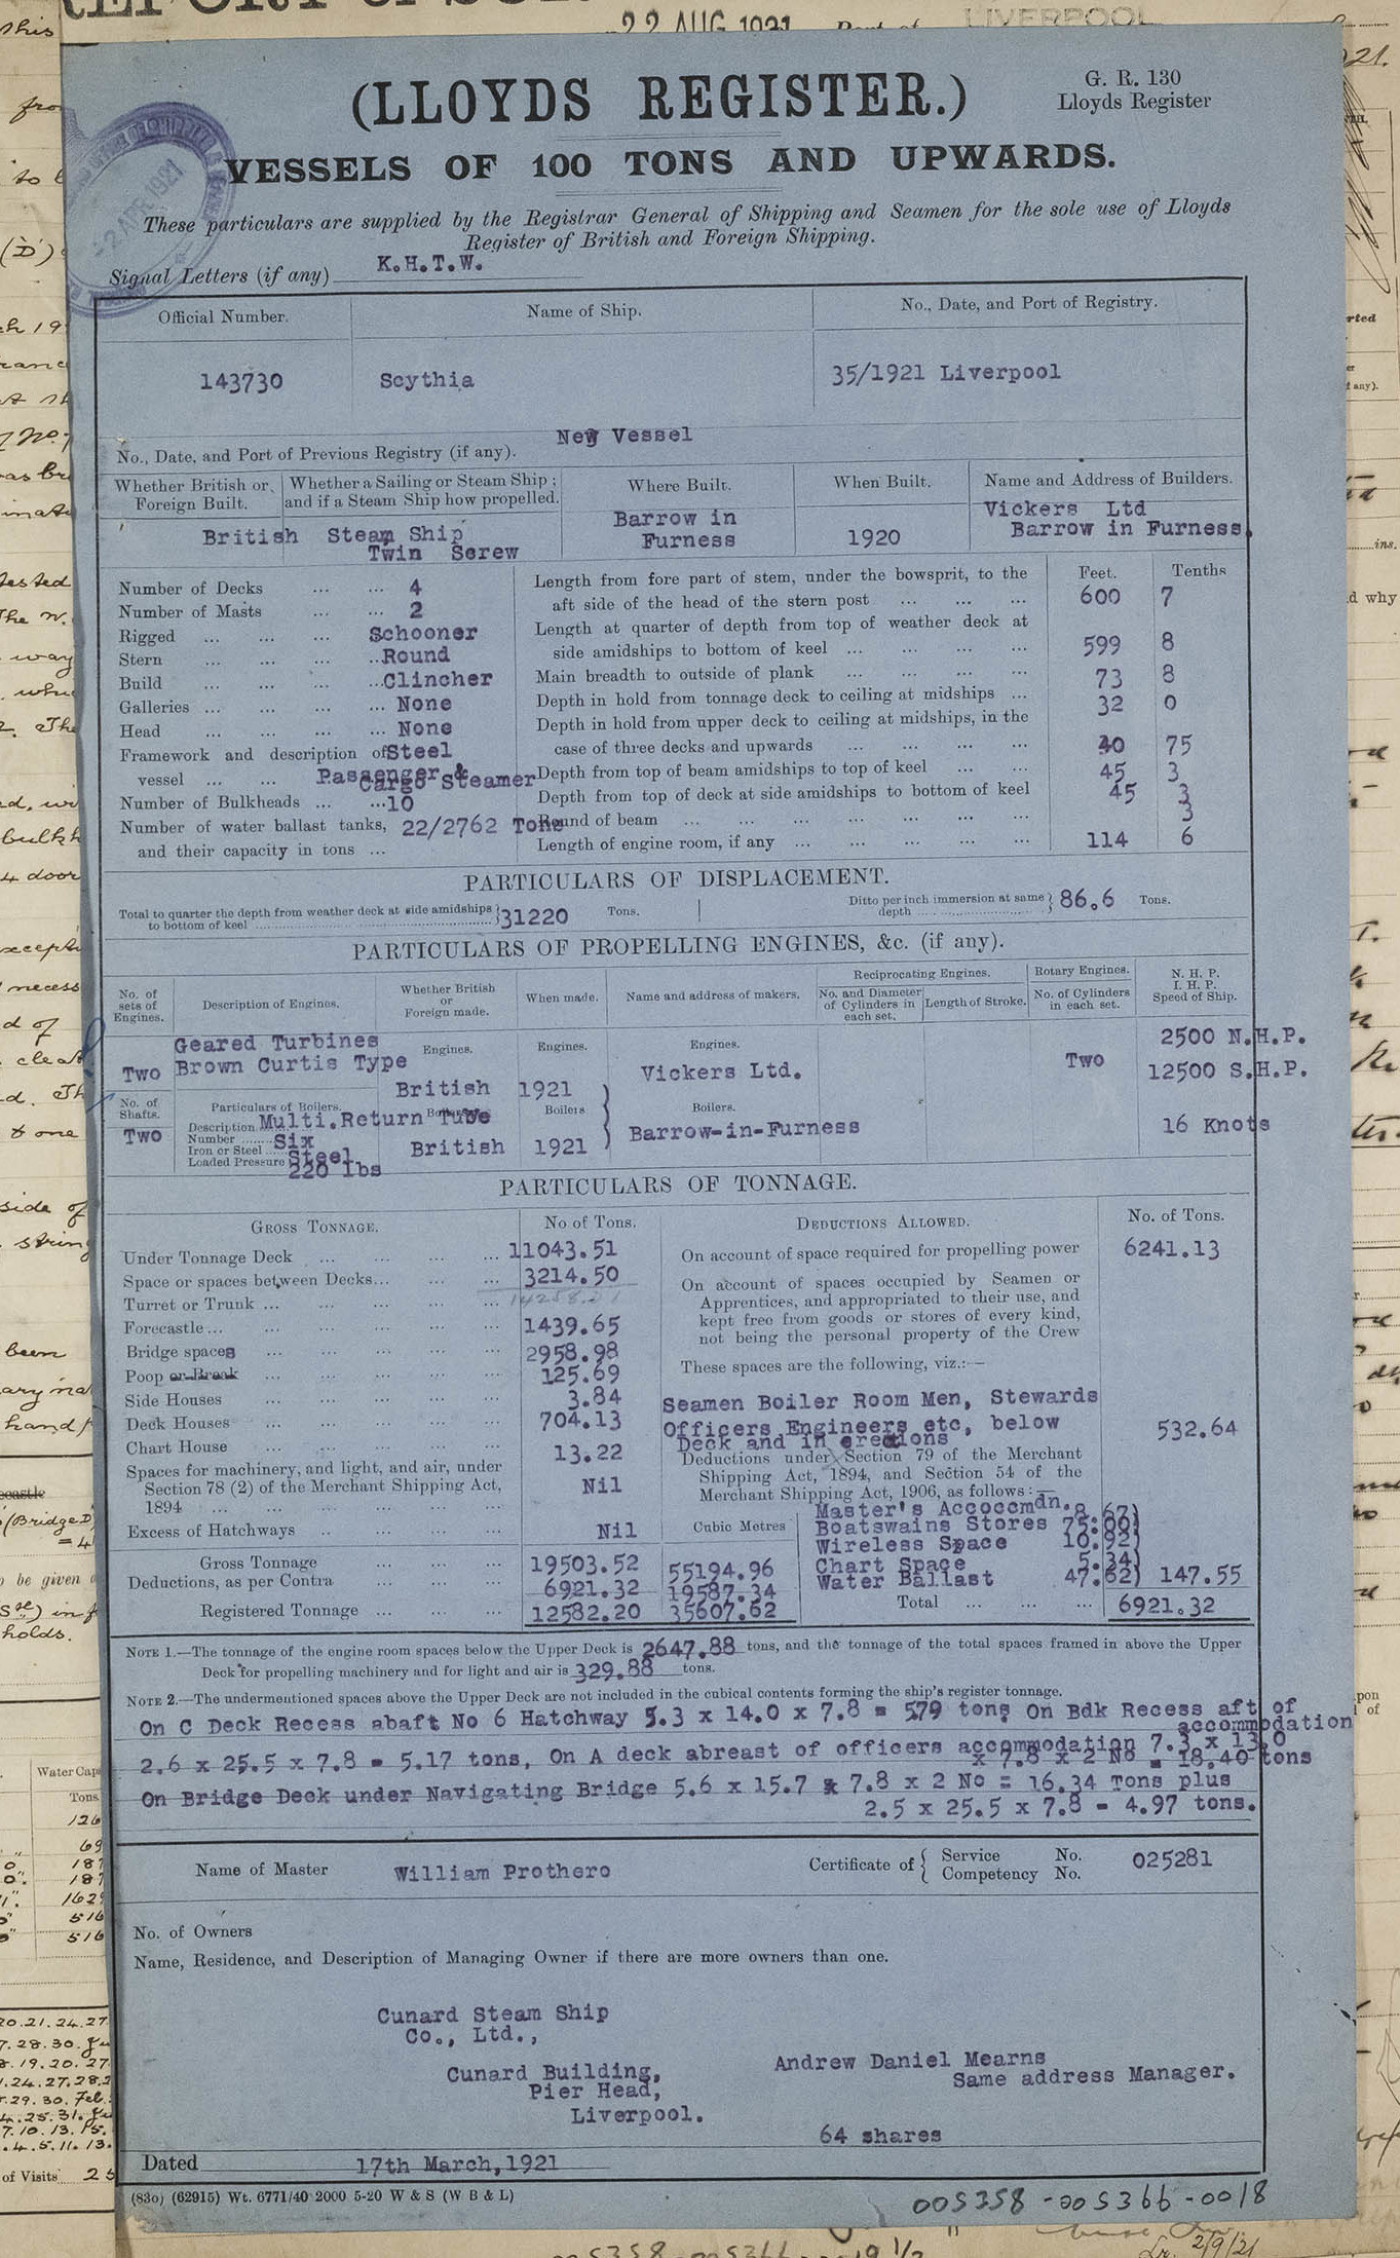 22 AUG 1921 Port of LIVERPOOL
(LLOYDS REGISTER.)
G. R. 130
Lloyds Register
VESSELS OF 100 TONS AND UPWARDS.
These particulars are supplied by the Registrar General of Shipping and Seamen for the sole use of Lloyds
Register of British and Foreign Shipping.
Signal Letters (if any) K.H.T.W.
Official Number. Name of Ship. No., Date, and Port of Registry.
143730 Scythia 35/1921 Liverpool
New Vessel
No., Date, and Port of Previous Registry (if any).
Whether British or Foreign Built. Whether a Sailing or Steam Ship; and if a Steam Ship how propelled. Where Built. When Built. Name and Address of Builders.
British Steam Ship Twin Screw Barrow in Furness 1920 Vickers Ltd Barrow in Furness.
Feet. Tenths
Number of Decks ... ... 4
Number of Masts ... ... 2
Rigged ... ... ... Schooner
Stern ... ... ... Round
Build ... ... ... Clincher
Galleries ... ... ... None
Head ... ... ... None
Framework and description of Steel
vessel ... ... Passenger & Cargo Steamer
Number of Bulkheads ... ... 10
Number of water ballast tanks, 22/2762 Tons
and their capacity in tons ...
Length from fore part of stem, under the bowsprit, to the
aft side of the head of the stern post ... ... ... 600 7
Length at quarter of depth from top of weather deck at
side amidships to bottom of keel ... ... ... ... 599 8
Main breadth to outside of plank ... ... ... ... 73 8
Depth in hold from tonnage deck to ceiling at midships ... 32 0
Depth in hold from upper deck to ceiling at midships, in the
case of three decks and upwards ... ... ... ... 40 75
Depth from top of beam amidships to top of keel ... ... 45 3
Depth from top of deck at side amidships to bottom of keel 45 3
Round of beam ... ... ... ... ... ... 3
Length of engine room, if any ... ... ... ... 114 6
PARTICULARS OF DISPLACEMENT.
Total to quarter the depth from weather deck at side amidships to bottom of keel } 31220 Tons. Ditto per inch immersion at same depth } 86.6 Tons.
PARTICULARS OF PROPELLING ENGINES, &c. (if any).
No. of sets of Engines. Description of Engines. Whether British or Foreign made. When made. Name and address of makers. Reciprocating Engines. No. and Diameter of Cylinders in each set. Length of Stroke. Rotary Engines. No. of Cylinders in each set. N. H. P. I. H. P. Speed of Ship.
Geared Turbines Engines. Engines. Engines. 2500 N.H.P.
Two Brown Curtis Type British 1921 Vickers Ltd. Two 12500 S.H.P.
No. of Shafts. Particulars of Boilers. Boilers Boilers.
Two Description Multi.Return Tube
Number Six British 1921 Barrow-in-Furness 16 Knots
Iron or Steel Steel
Loaded Pressure 220 lbs
PARTICULARS OF TONNAGE.
GROSS TONNAGE. No of Tons. DEDUCTIONS ALLOWED. No. of Tons.
Under Tonnage Deck ... ... ... 11043.51
Space or spaces between Decks... ... ... 3214.50
Turret or Trunk ... ... ... ... 14258.01
Forecastle ... ... ... ... 1439.65
Bridge spaces ... ... ... ... 2958.98
Poop or Break ... ... ... ... 125.69
Side Houses ... ... ... ... 3.84
Deck Houses ... ... ... ... 704.13
Chart House ... ... ... ... 13.22
Spaces for machinery, and light, and air, under
Section 78 (2) of the Merchant Shipping Act,
1894 ... ... ... ... Nil
Excess of Hatchways ... ... ... Nil Cubic Metres
Gross Tonnage ... ... ... 19503.52 55194.96
Deductions, as per Contra ... ... ... 6921.32 19587.34
Registered Tonnage ... ... ... 12582.20 35607.62
On account of space required for propelling power 6241.13
On account of spaces occupied by Seamen or
Apprentices, and appropriated to their use, and
kept free from goods or stores of every kind,
not being the personal property of the Crew
These spaces are the following, viz.:—
Seamen Boiler Room Men, Stewards
Officers Engineers etc, below 532.64
Deck and in erections
Deductions under Section 79 of the Merchant
Shipping Act, 1894, and Section 54 of the
Merchant Shipping Act, 1906, as follows:—
Master's Accoccmdn. 8.67)
Boatswains Stores 75.00)
Wireless Space 10.92)
Chart Space 5.34)
Water Ballast 47.62) 147.55
Total ... ... ... 6921.32
NOTE 1.—The tonnage of the engine room spaces below the Upper Deck is 2647.88 tons, and the tonnage of the total spaces framed in above the Upper
Deck for propelling machinery and for light and air is 329.88 tons.
NOTE 2.—The undermentioned spaces above the Upper Deck are not included in the cubical contents forming the ship's register tonnage.
On C Deck Recess abaft No 6 Hatchway 5.3 x 14.0 x 7.8 = 579 tons On Bdk Recess aft of accommodation
2.6 x 25.5 x 7.8 = 5.17 tons, On A deck abreast of officers accommodation 7.3 x 13.0
x 7.8 x 2 No = 18.40 tons
On Bridge Deck under Navigating Bridge 5.6 x 15.7 x 7.8 x 2 No = 16.34 Tons plus
2.5 x 25.5 x 7.8 = 4.97 tons.
Name of Master William Prothero Certificate of { Service No. Competency No. 025281
No. of Owners
Name, Residence, and Description of Managing Owner if there are more owners than one.
Cunard Steam Ship
Co., Ltd.,
Cunard Building,
Pier Head,
Liverpool.
Andrew Daniel Mearns
Same address Manager.
64 shares
Dated 17th March, 1921
(83o) (62915) Wt. 6771/40 2000 5-20 W & S (W B & L)
005358-005366-0018